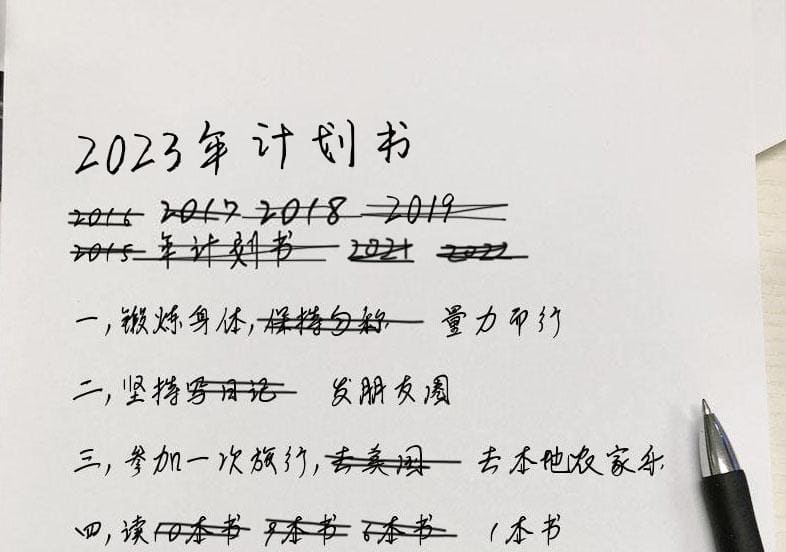 2023年计划书
2016 2017 2018 2019
2015年计划书 2021 2022
一,锻炼身体,保持匀称 量力而行
二,坚持写日记 发朋友圈
三,参加一次旅行,去美国 去本地农家乐
四,读10本书 9本书 6本书 1本书